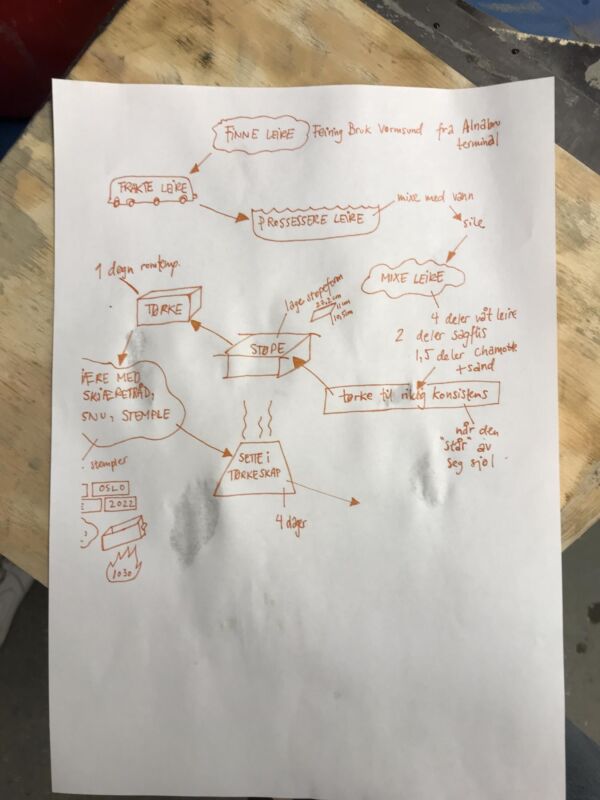 FINNE LEIRE
Feiring Bruk Vormsund fra Alnabru
terminal
FRAKTE LEIRE
PROSSESSERE LEIRE
mixe med vann
sile
MIXE LEIRE
4 deler våt leire
2 deler sagflis
1,5 deler chamotte
+ sand
tørke til riktig konsistens
når den
"står" av
seg sjøl
lage støpeform
11cm
10,5cm
STØPE
1 døgn romtemp.
TØRKE
KJÆRE MED
SKJÆRETRÅD,
SNU, STEMPLE
stempler
OSLO
2022
1030
SETTE I
TØRKESKAP
4 dager